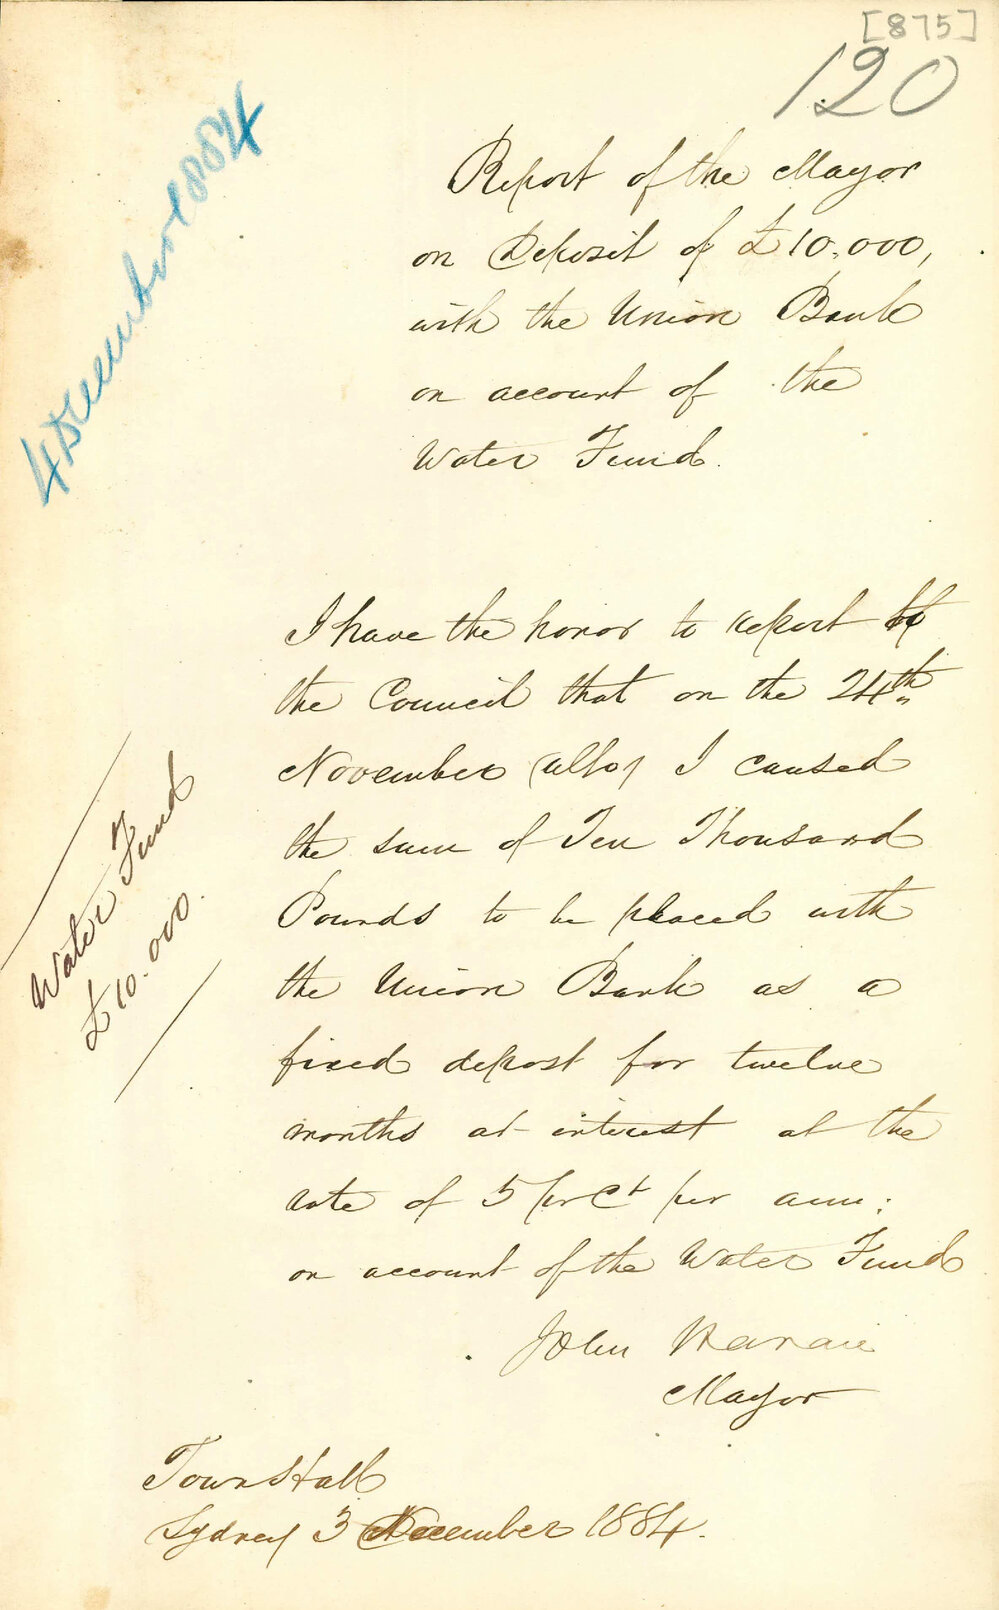 [875]
120
4 December 1884
Report of the Mayor
on Deposit of £10,000,
with the Union Bank
on account of the
Water Fund.
I have the honor to report to
the Council that on the 24th
November (ulto) I caused
the sum of Ten Thousand
Pounds to be placed with
the Union Bank as a
fixed depost for twelve
months at interest at the
rate of 5 pr Ct per ann:
on account of the Water Fund
John Hardie
Mayor
Water Fund
£10.000.
Town Hall
Sydney 3 December 1884.